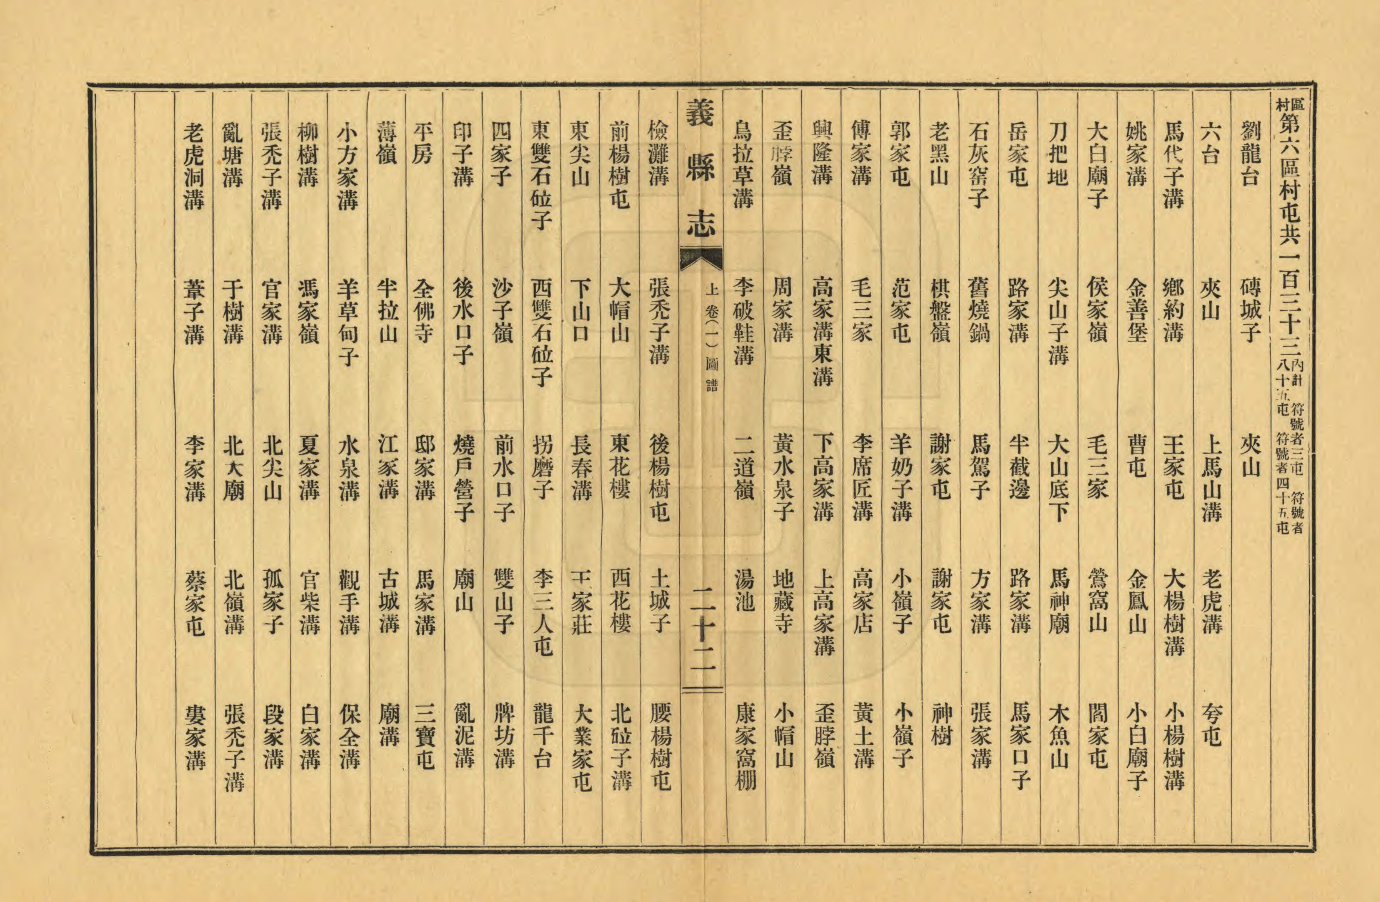 區村第六區村屯共一百三十三內計 符號者三屯 符號者八十五屯 符號者四十五屯
劉龍台 磚城子 夾山
六台 夾山 上馬山溝 老虎溝 夸屯
馬代子溝 鄉約溝 王家屯 大楊樹溝 小楊樹溝
姚家溝 金善堡 曹屯 金鳳山 小白廟子
大白廟子 侯家嶺 毛三家 鶯窩山 閻家屯
刀把地 尖山子溝 大山底下 馬神廟 木魚山
岳家屯 路家溝 半截邊 路家溝 馬家口子
石灰窰子 舊燒鍋 馬駕子 方家溝 張家溝
老黑山 棋盤嶺 謝家屯 謝家屯 神樹
郭家屯 范家屯 羊奶子溝 小嶺子 小嶺子
傅家溝 毛三家 李席匠溝 高家店 黃土溝
興隆溝 高家溝東溝 下高家溝 上高家溝 歪脖嶺
歪脖嶺 周家溝 黃水泉子 地藏寺 小帽山
烏拉草溝 李破鞋溝 二道嶺 湯池 康家窩棚
義縣志 上卷(一)圖譜 二十二
檢灘溝 張禿子溝 後楊樹屯 土城子 腰楊樹屯
前楊樹屯 大帽山 東花樓 西花樓 北砬子溝
東尖山 下山口 長春溝 王家莊 大業家屯
東雙石砬子 西雙石砬子 拐磨子 李三人屯 龍千台
四家子 沙子嶺 前水口子 雙山子 牌坊溝
印子溝 後水口子 燒戶營子 廟山 亂泥溝
平房 全佛寺 邸家溝 馬家溝 三寶屯
薄嶺 半拉山 江家溝 古城溝 廟溝
小方家溝 羊草甸子 水泉溝 觀手溝 保全溝
柳樹溝 馮家嶺 夏家溝 官柴溝 白家溝
張禿子溝 官家溝 北尖山 孤家子 段家溝
亂塘溝 于樹溝 北大廟 北嶺溝 張禿子溝
老虎洞溝 葦子溝 李家溝 蔡家屯 婁家溝